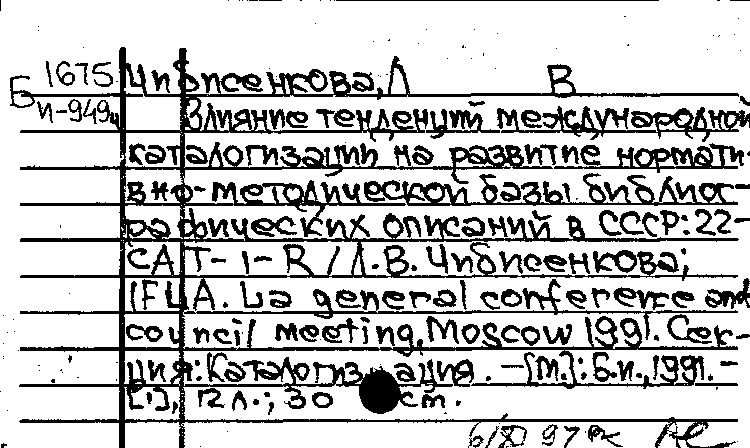 Б 1675 Чибисенкова, Л В
И-949ч Влияние тенденций международной
каталогизации на развитие нормати-
вно-методической базы библиог-
рафических описаний в СССР: 22-
CAT-1-R / Л.В. Чибисенкова;
IFLA. La general conference and
council meeting, Moscow 1991. Сек-
ция: Каталогизация. –[М.]: Б.и., 1991. –
[1], 12 л.; 30 см.
97